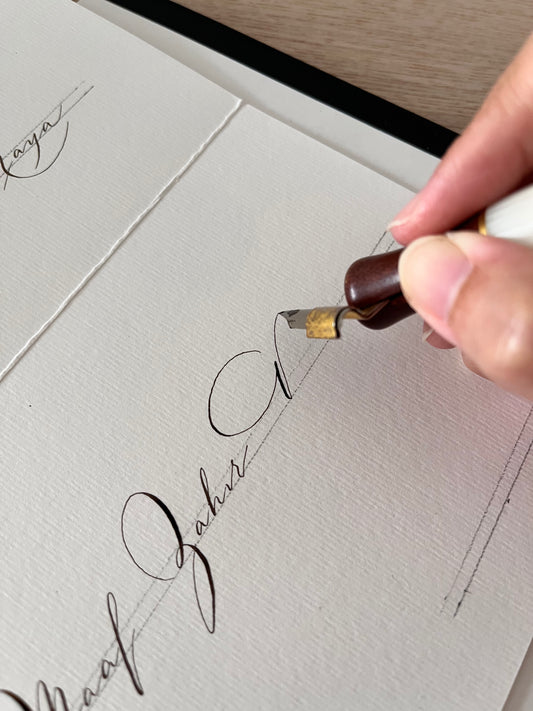 Raya
Maaf Zahir